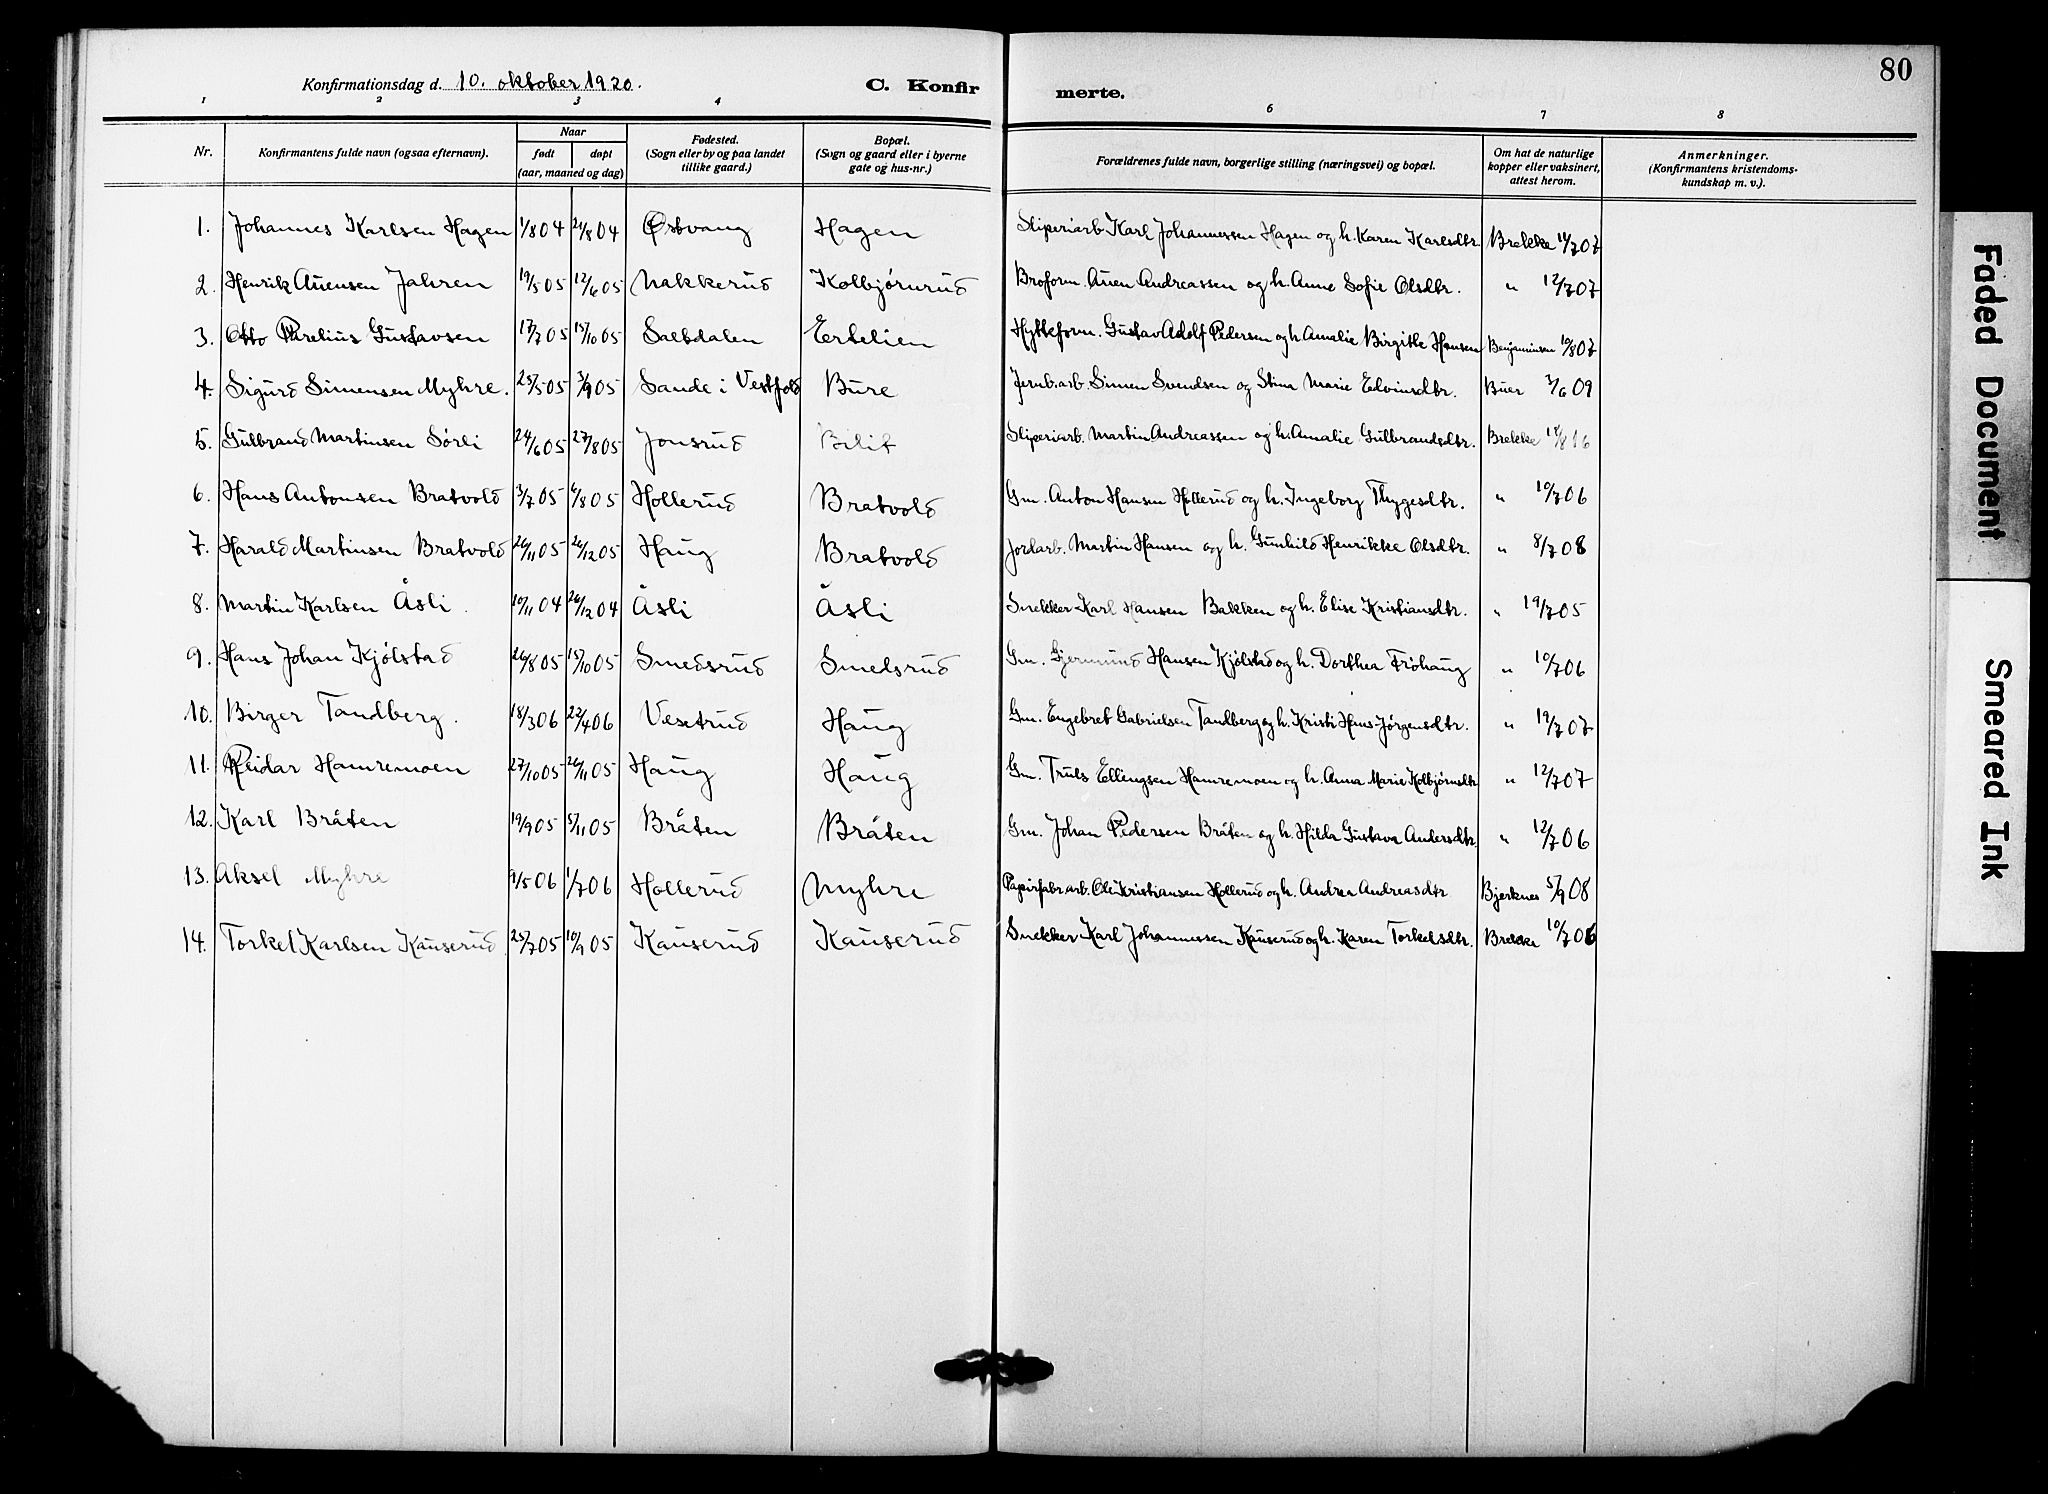 80
Konfirmationsdag d. 10. oktober 1920. C. Konfirmerte.
1 2 3 4 5 6 7 8
Nr. Konfirmantens fulde navn (ogsaa efternavn). Naar født døpt (aar, maaned og dag) Fødested. (Sogn eller by og paa landet tillike gaard.) Bopæl. (Sogn og gaard eller i byerne gate og hus-nr.) Forældrenes fulde navn, borgerlige stilling (næringsvei) og bopæl. Om hat de naturlige kopper eller vaksinert, attest herom. Anmerkninger. (Konfirmantens kristendoms-kundskap m. v.).
1. Johannes Karlsen Hagen 1/8 04 21/8 04 Østvang Hagen Sliperiarb. Karl Johannessen Hagen og h. Karen Karlsdtr. Brekke 11/7 07
2. Henrik Auensen Jahren 19/5 05 12/6 05 Nakkerud Kolbjørnrud Broform. Auen Andreassen og h. Anne Sofie Olsdtr. " 12/7 07
3. Otto Parelius Gustavsen 17/7 05 15/10 05 Saltdalen Ertelien Hytteform. Gustav Adolf Pedersen og h. Amalie Birgitte Hansen Benjaminsen 10/8 07
4. Sigurd Simensen Myhre. 25/5 05 3/9 05 Sande i Vestfold Bure Jernb.arb. Simen Svendsen og Stina Marie Edvinsdtr. Buer 3/6 09
5. Gulbrand Martinsen Sørli 24/6 05 27/8 05 Jonsrud Bilit Sliperiarb. Martin Andreassen og h. Amalie Gulbrandsdtr. Brekke 18/8 16
6. Hans Antonsen Bratvold 3/7 05 6/8 05 Hollerud Bratvold Gm. Anton Hansen Hollerud og h. Ingeborg Thygesdtr. " 10/7 06
7. Harald Martinsen Bratvold 26/11 05 26/12 05 Haug Bratvold Jordarb. Martin Hansen og h. Gunhild Henrikke Olsdtr. " 8/7 08
8. Martin Karlsen Åsli. 10/11 04 26/12 04 Åsli Åsli Snekker Karl Hansen Bakken og h. Elise Kristiansdtr. " 19/7 05
9. Hans Johan Kjølstad 26/8 05 15/10 05 Smedsrud Smedsrud Gm. Gjermund Hansen Kjølstad og h. Dorthea Frøhaug " 10/7 06
10. Birger Tandberg. 18/3 06 22/4 06 Vesetrud Haug Gm. Engebret Gabrielsen Tandberg og h. Kristi Hans Jørgensdtr. " 19/7 07
11. Reidar Hamremoen 27/10 05 26/11 05 Haug Haug Gm. Truls Ellingsen Hamremoen og h. Anna Marie Kolbjørnsdtr " 12/7 07
12. Karl Bråten 19/9 05 5/11 05 Bråten Bråten Gm. Johan Pedersen Bråten og h. Hilda Gustava Andersdtr. " 12/7 06
13. Aksel Myhre 9/5 06 1/7 06 Hollerud Myhre Papirfabr.arb. Ole Kristiansen Hollerud og h. Andrea Andreasdtr Bjerknes 5/9 08
14. Torkel Karlsen Kauserud 25/7 05 10/9 05 Kauserud Kauserud Snekker Karl Johannessen Kauserud og h. Karen Torkelsdtr. Brekke 10/7 06
Faded Document
Smeared Ink